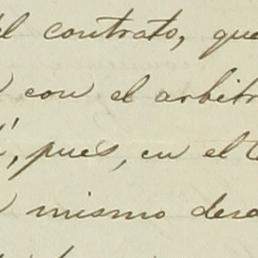 el contrato, que
con el arbitr
pues, en el C
mismo dese